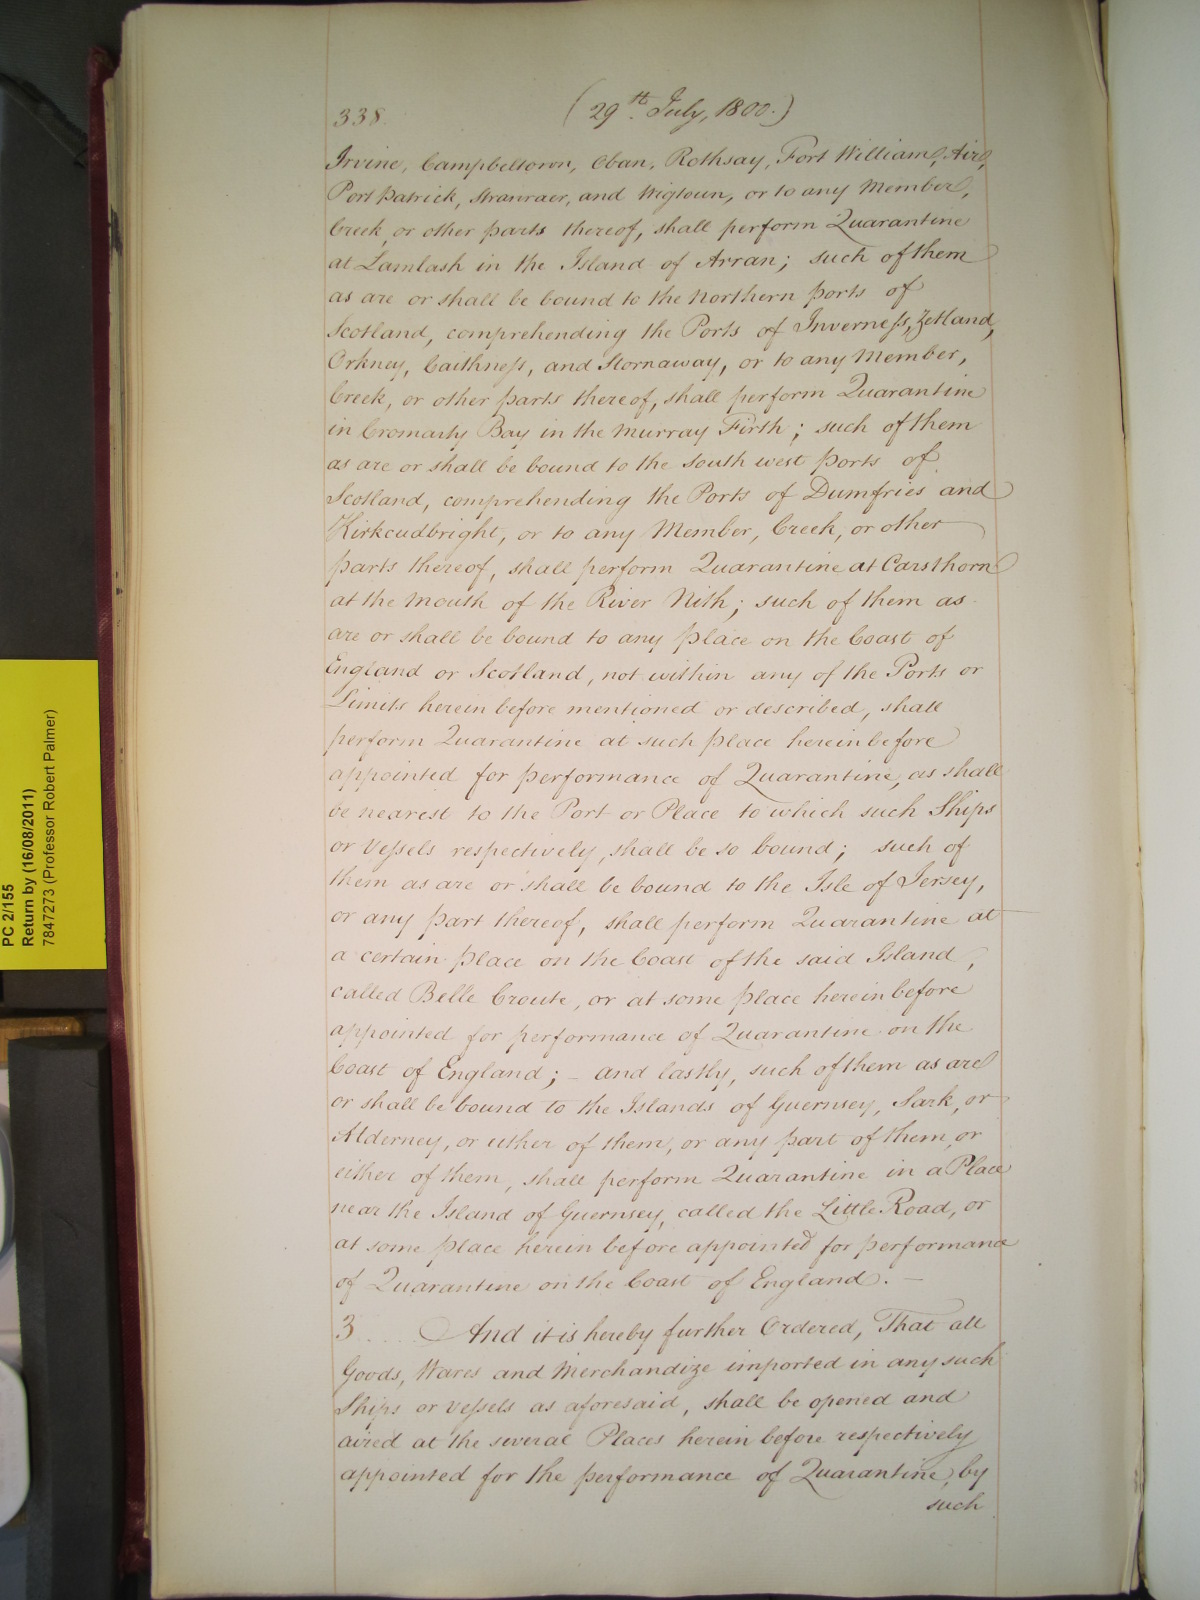 338.
(29th July, 1800.)
Irvine, Campbeltown, Oban, Rothsay, Fort William, Air,
Port Patrick, Stranraer, and Wigtown, or to any Member,
Creek, or other parts thereof, shall perform Quarantine
at Lamlash in the Island of Arran; such of them
as are or shall be bound to the Northern ports of
Scotland, comprehending the Ports of Inverness, Zetland,
Orkney, Caithness, and Stornaway, or to any Member,
Creek, or other parts thereof, shall perform Quarantine
in Cromarty Bay in the Murray Firth; such of them
as are or shall be bound to the South west ports of
Scotland, comprehending the Ports of Dumfries and
Kirkcudbright, or to any Member, Creek, or other
parts thereof, shall perform Quarantine at Carsthorn
at the Mouth of the River Nith; such of them as
are or shall be bound to any place on the Coast of
England or Scotland, not within any of the Ports or
Limits herein before mentioned or described, shall
perform Quarantine at such place herein before
appointed for performance of Quarantine, as shall
be nearest to the Port or Place to which such Ships
or Vessels respectively, shall be so bound; such of
them as are or shall be bound to the Isle of Jersey,
or any part thereof, shall perform Quarantine at
a certain place on the Coast of the said Island,
called Belle Croute, or at some place herein before
appointed for performance of Quarantine on the
Coast of England; – and lastly, such of them as are
or shall be bound to the Islands of Guernsey, Sark, or
Alderney, or either of them, or any part of them, or
either of them, shall perform Quarantine in a Place
near the Island of Guernsey, called the Little Road, or
at some place herein before appointed for performance
of Quarantine on the Coast of England. –
3 .... And it is hereby further Ordered, That all
Goods, Wares and Merchandize imported in any such
Ships or Vessels as aforesaid, shall be opened and
aired at the several Places herein before respectively
appointed for the performance of Quarantine, by
such
PC 2/155
Return by (16/08/2011)
7847273 (Professor Robert Palmer)